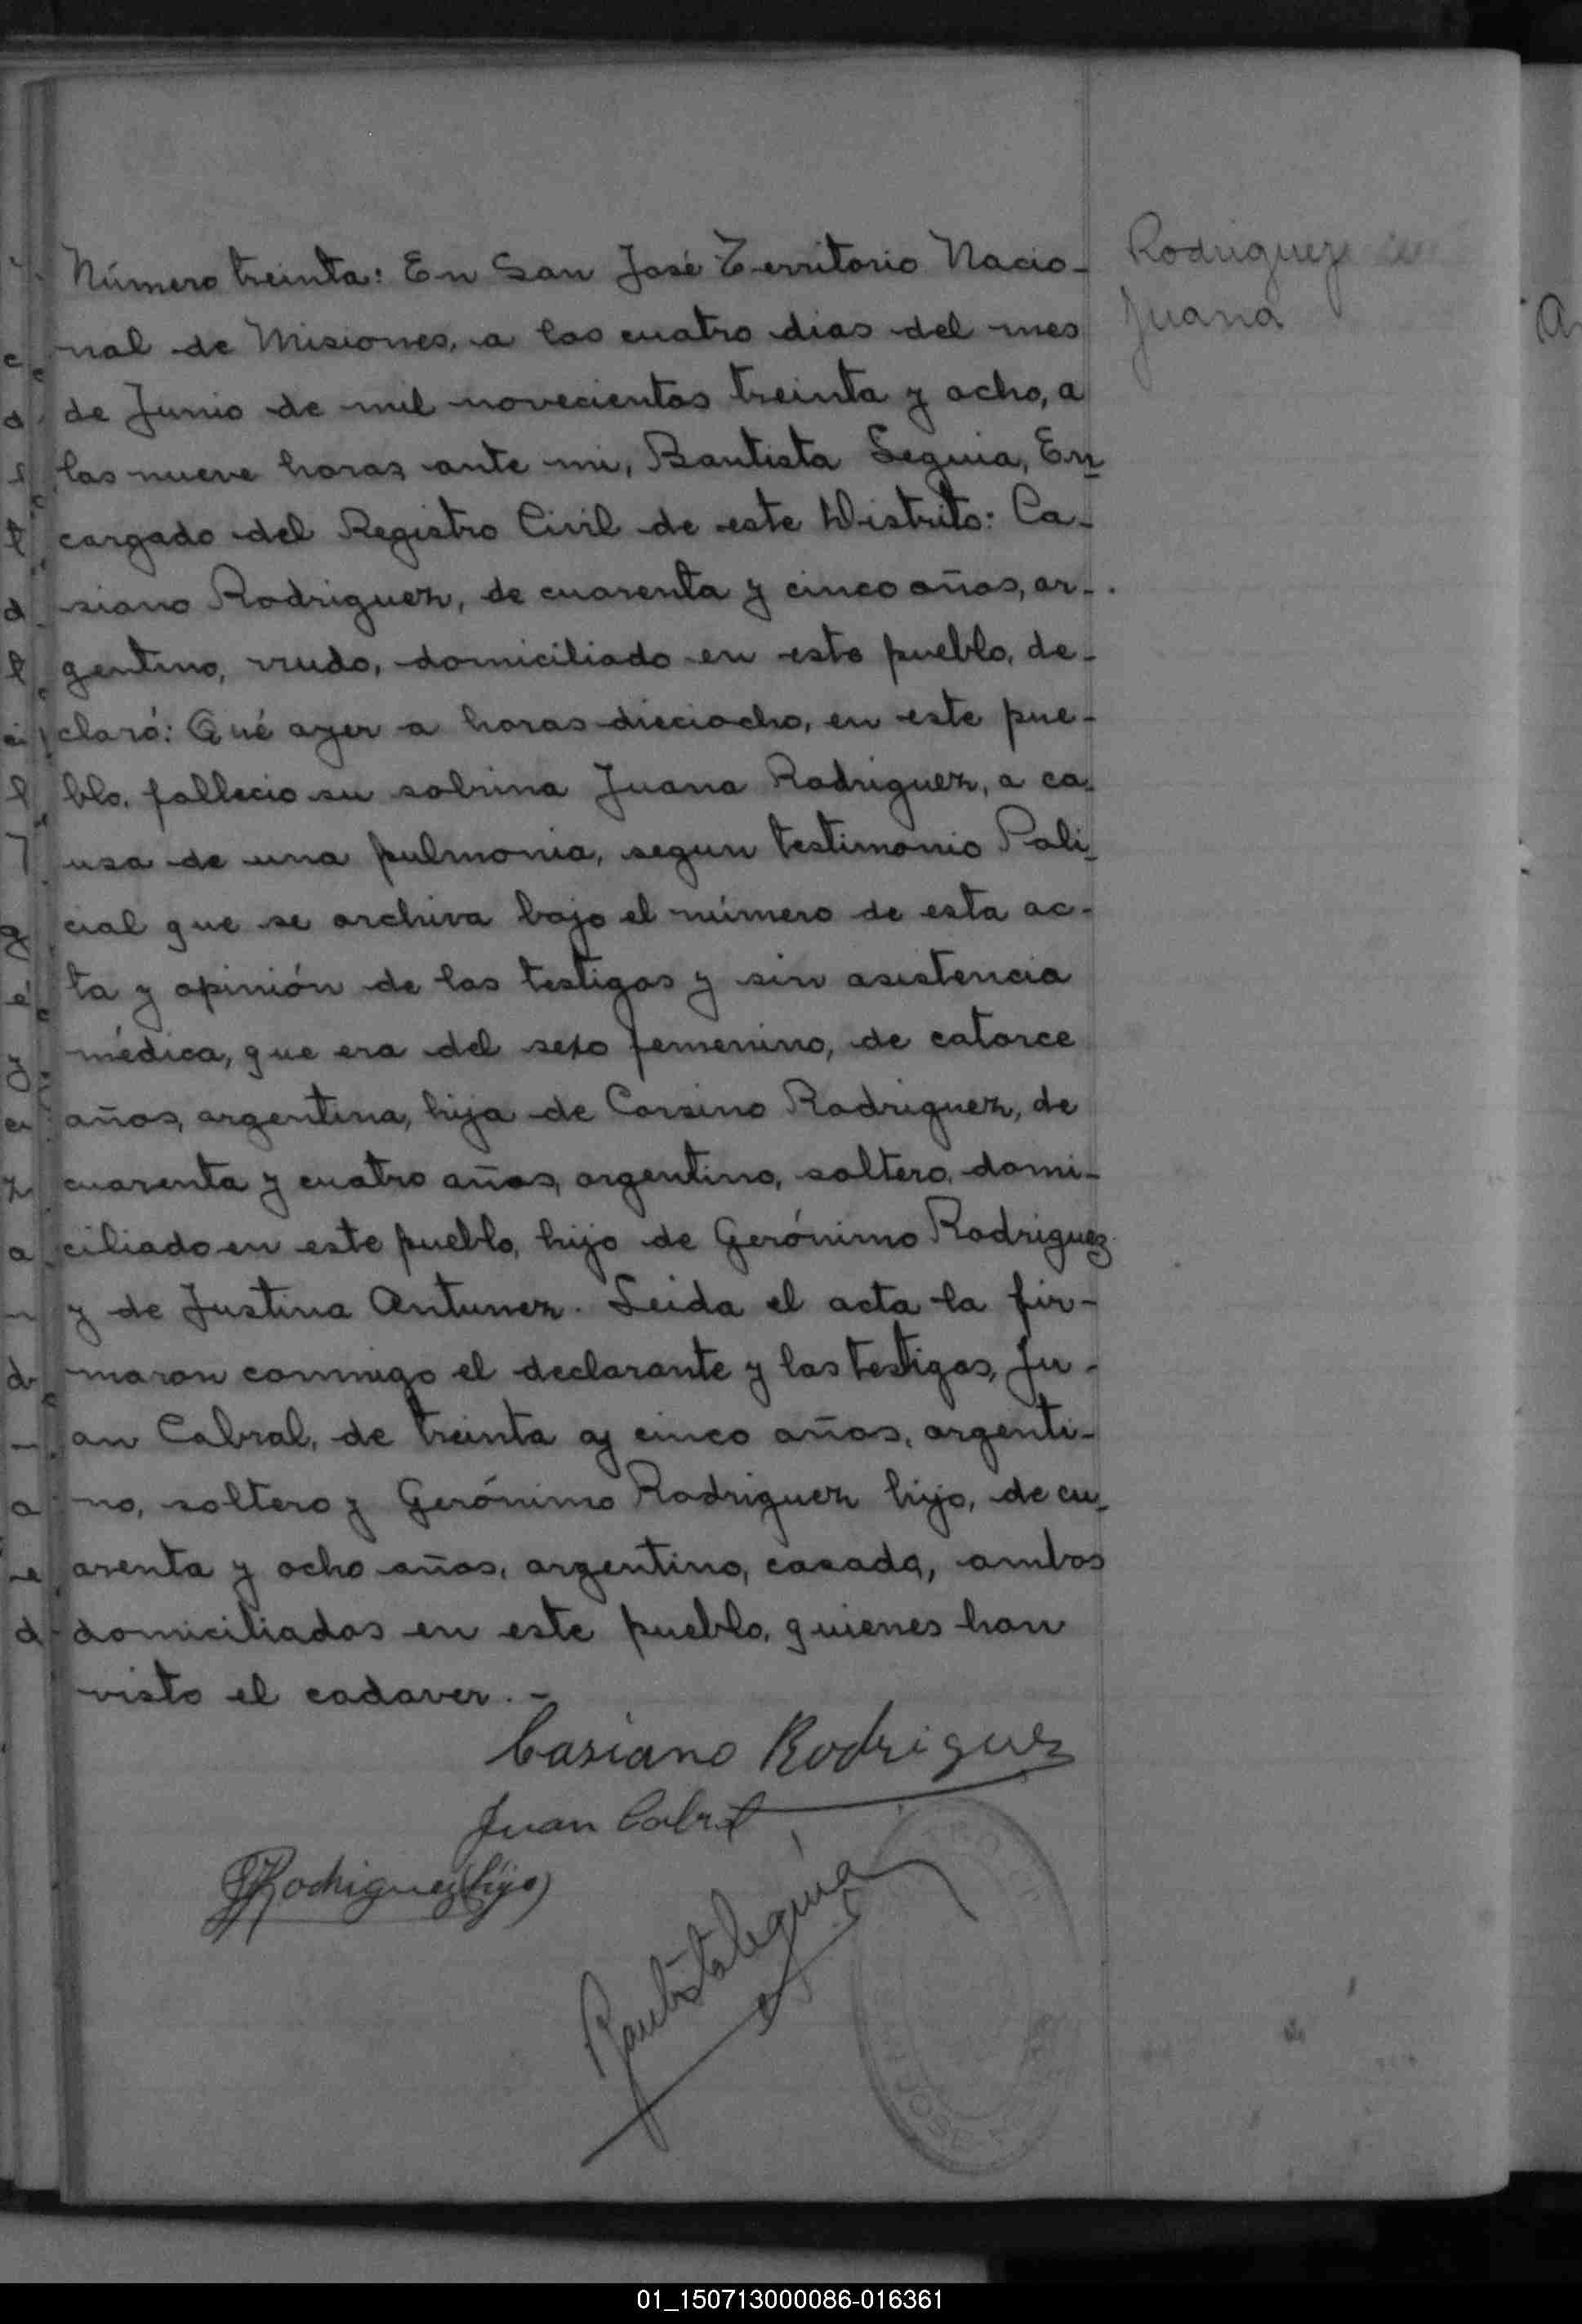 Número treinta: En San José Territorio Nacio-
nal de Misiones, a los cuatro dias del mes
de Junio de mil novecientos treinta y ocho, a
las nueve horas ante mi, Bautista Leguia, En
cargado del Registro Civil de este Distrito: Ca-
siano Rodriguez, de cuarenta y cinco años, ar-
gentino, viudo, domiciliado en este pueblo, de-
claró: Qué ayer a horas dieciocho, en este pue-
blo, fallecio su sobrina Juana Rodriguez, a ca-
usa de una pulmonia, segun testimonio Poli-
cial que se archiva bajo el número de esta ac-
ta y opinión de los testigos y sin asistencia
médica, que era del sexo femenino, de catorce
años, argentina, hija de Corsino Rodriguez, de
cuarenta y cuatro años, argentino, soltero, domi-
ciliado en este pueblo, hijo de Gerónimo Rodriguez
y de Justina Antunez. Leida el acta la fir-
maron conmigo el declarante y los testigos, Ju-
an Cabral, de treinta y cinco años, argenti-
no, soltero y Gerónimo Rodriguez hijo, de cu-
arenta y ocho años, argentino, casado, ambos
domiciliados en este pueblo, quienes han
visto el cadaver.-
Rodriguez
Juana
Casiano Rodriguez
Juan Cabral
G Rodriguez (hijo)
Bautista Leguia
01_150713000086-016361